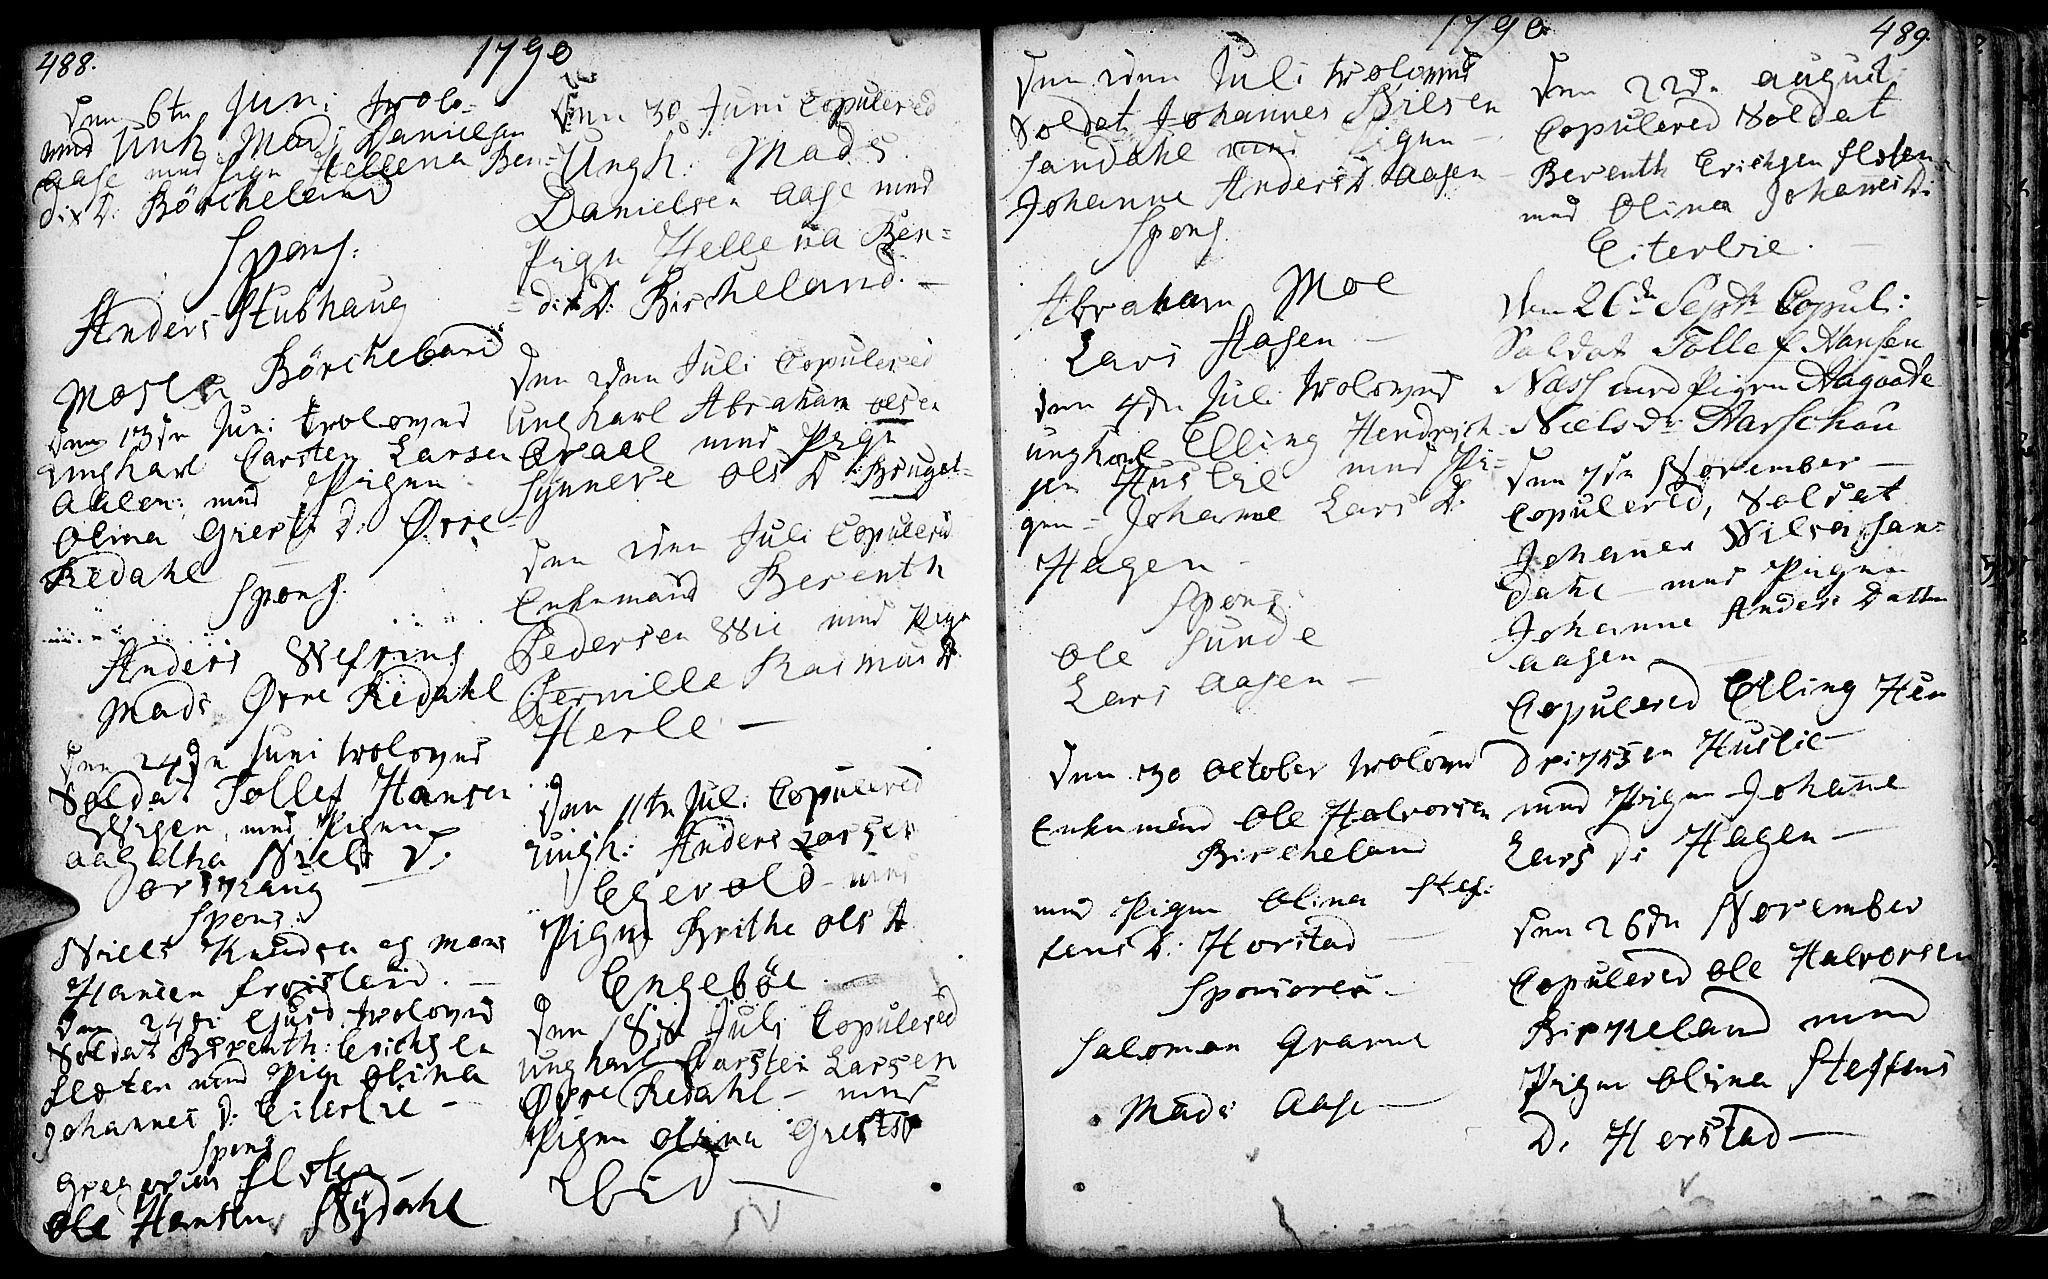 488.
1790
Den 6te Juni trolo=
ved Unk Mads Danielsen
Aase med Pigen Hellena Ben=
dix D: Börcheland
Spons:
Anders Stubhaug
Börcheland
Den 13de Juni trolowed
ungkarl Carsten Larsen
med Pigen
Olina Gierts D: Øvre
Redahl
Spons:
Anders Wefring
Mads Øvre Redahl
Den 24de Juni trolowed
Soldat Tollef Hansen
med Pigen
Aagetha Niels D:
Spons:
Niels Knudsen og Mons
Hansen
Den 24de trolowed
Soldat Berenth Erichsen
Floten med Pige Olina
Johannes D: Eiterlie -
Spons
Gregorius Floten -
Ole Hansen Nÿdahl
Den 30 Juni Copulered
Ungk: Mads
Danielsen Aase med
Pign Hellena Ben=
=dix D: Bircheland. -
Den 2den Juli Copulered
Ungkarl Abraham Olsen
med Pign
Synneve Ols D:
Den 2den Juli Copulered
Enkemand Berenth
Pedersen Wie med Pign
Pernille Rasmus D
Herle -
Den 11te Juli Copulered
ungk: Anders Larsen
Egevold med
Pigen Brithe Ols D
Engebøe
Den 18de Juli Copulered
Ungkarl Carsten Larsen
Øvre Redahl - med
Pigen Olina Giertsd
Ibid -
1790.
489.
Den 2den Juli trolowed
Soldat Johannes Nilsen
Sandahl med Pigen -
Johanne Anders D Aasen -
Spons
Abraham Moe
Lars Aasen -
Den 4de Juli trolowed
ungkarl Elling Hendrich=
sen Huslie med Pi=
gen = Johanne Lars D.
Hagen -
Spons
Ole Sunde
Lars Aasen -
Den 30 October trolowed
Enkemand Ole Halvorsen
Bircheland
med Pigen Olina Stef=
fens D: Horstad -
Sponsores -
Salomon
Mads Aase -
Den 22de August
Copulered Soldat
Berenth Erichsen Floten
med Olina Johannes D:
Eiterlie. -
Den 26de Septr Copul:
Soldat Tollef Hansen
Næss med Pigen Aagaate
Niels Dr Harschou
Den 7de November -
Copulered, Soldat
Johannes Nilsen San=
dahl - med Pigen
Johanne Anders Datter
Aasen -
Copulered Elling Hen
drichsen Huslie -
med Pigen Johanne
Lars D: Hagen -
Den 26de November
Copulered Ole Halvorsen
Birckeland med
Pigen Olina Steffens
D. Horstad -